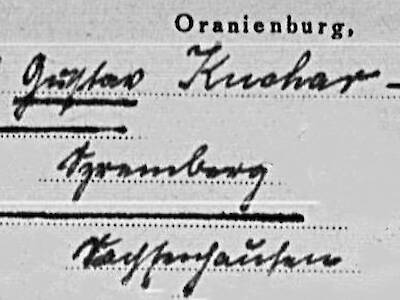 Oranienburg,
Gustav Knohar
Spremberg
Sachsenhausen